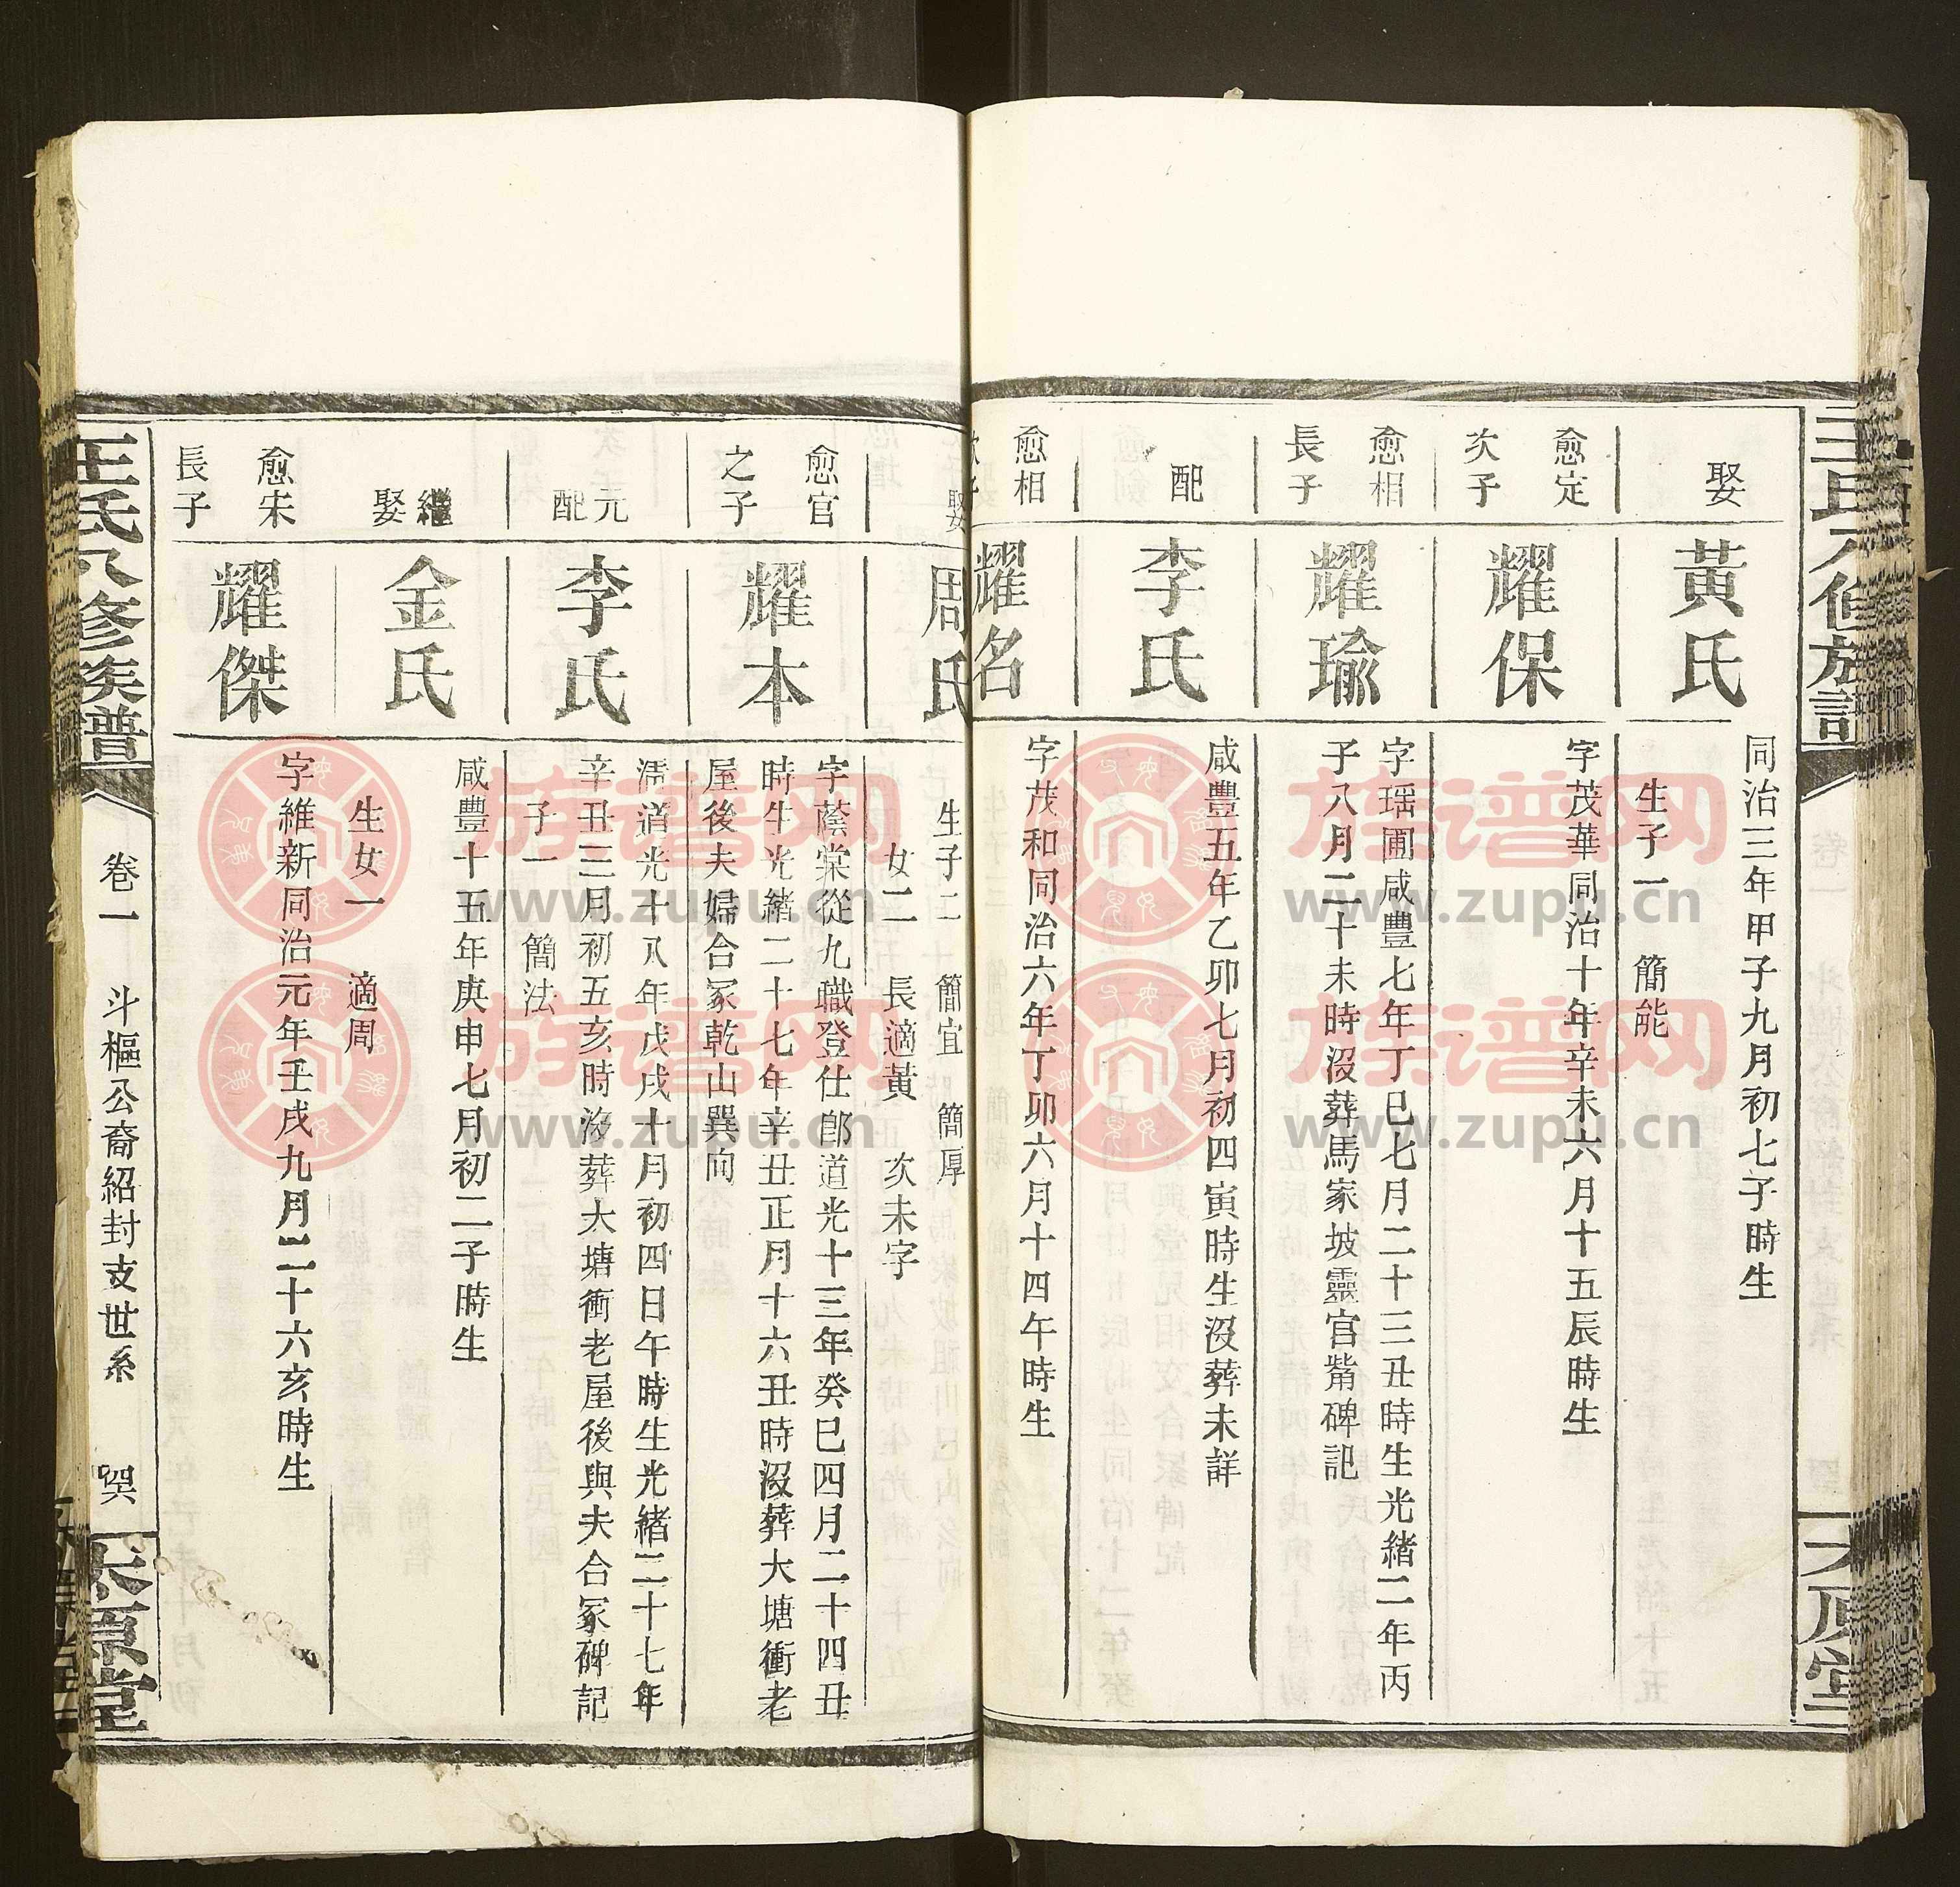 王氏八修族譜
太原堂
娶
黃氏
同治三年甲子九月初七子時生
生子一 簡能
愈定
次子
耀保
字茂華同治十年辛未六月十五辰時生
愈相
長子
耀瑜
字瑶圃咸豐七年丁巳七月二十三丑時生光緒二年丙
子八月二十未時沒葬馬家坡靈官觜碑記
配
李氏
咸豐五年乙卯七月初四寅時生沒葬未詳
愈相
次子
耀名
字茂和同治六年丁卯六月十四午時生
娶
周氏
生子二 簡宜 簡厚
女二 長適黃 次未字
愈官
之子
耀本
字蔭棠從九職登仕郎道光十三年癸巳四月二十四丑
時生光緒二十七年辛丑正月十六丑時沒葬大塘衝老
屋後夫婦合冢乾山巽向
元配
李氏
濡道光十八年戊戌十月初四日午時生光緒二十七年
辛丑三月初五亥時沒葬大塘衝老屋後與夫合冢碑記
子一 簡法
繼娶
金氏
咸豐十五年庚申七月初二子時生
生女一 適周
愈宋
長子
耀傑
字維新同治元年壬戌九月二十六亥時生
王氏八修族譜
卷一 斗樞公裔紹封支世系
太原堂
族谱网
www.zupu.cn
族谱网
www.zupu.cn
族谱网
www.zupu.cn
族谱网
www.zupu.cn